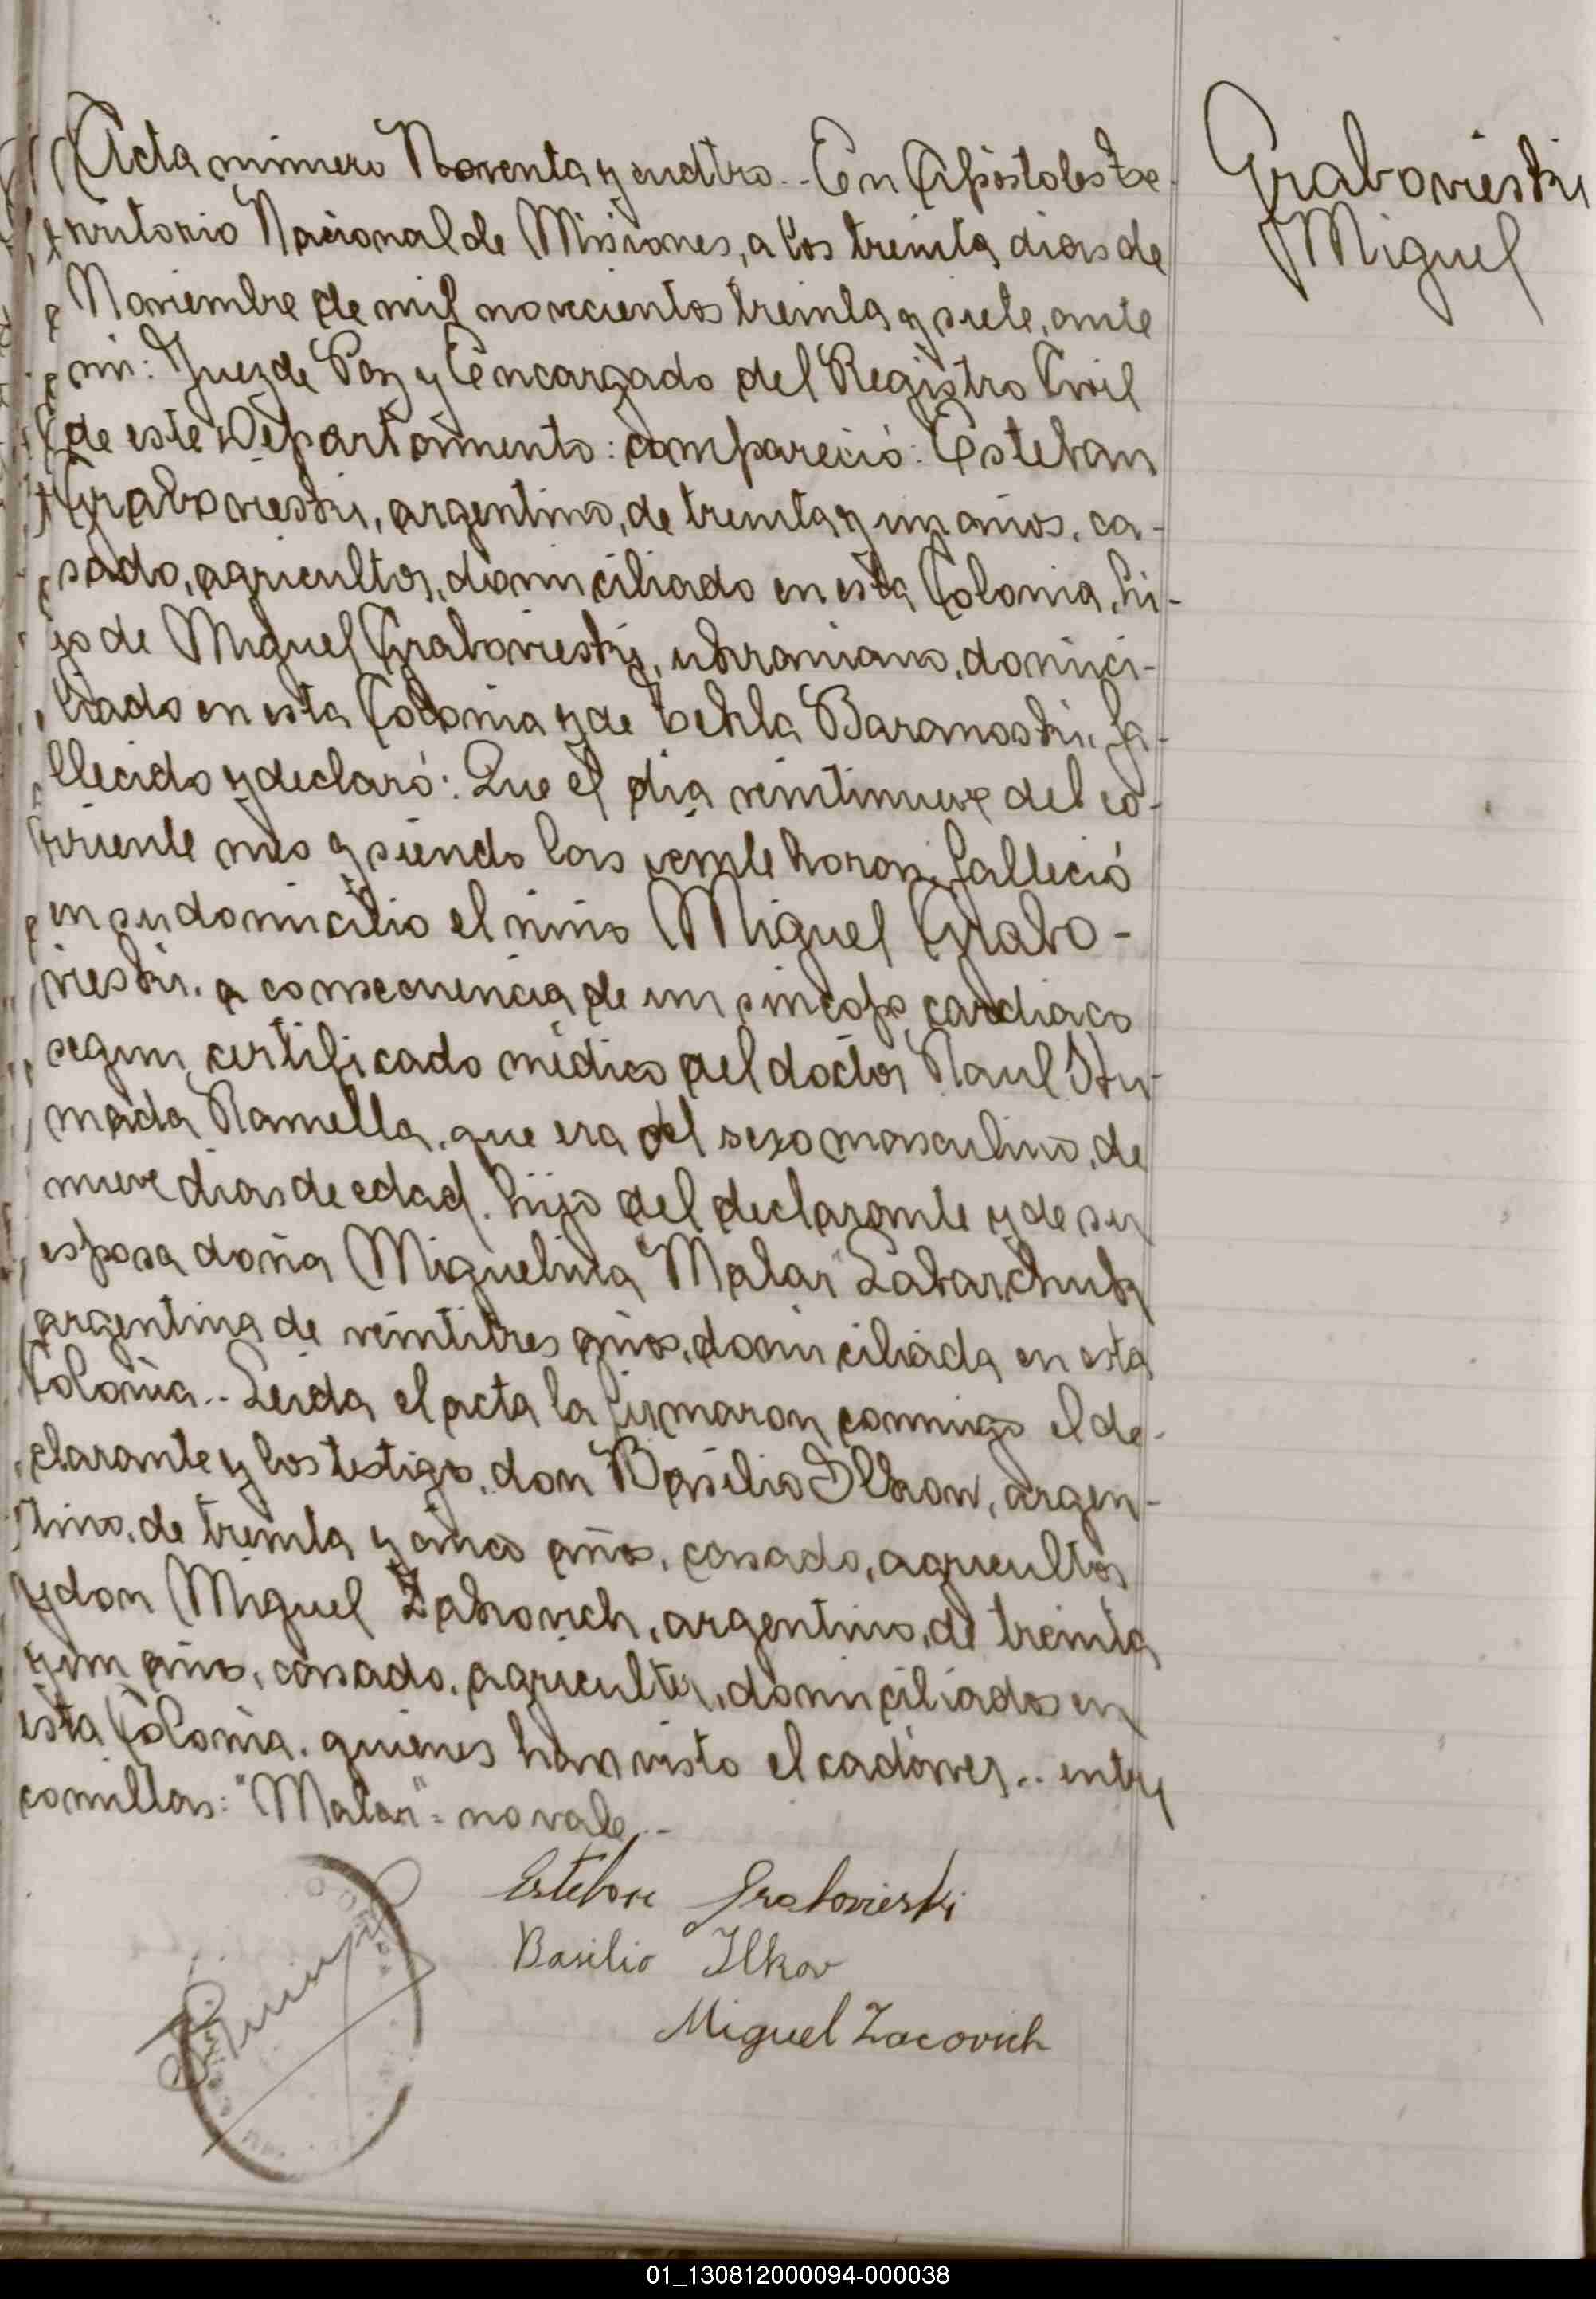 Acta número Noventa y cuatro.- En Apóstoles Te-
rritorio Nacional de Misiones, a los treinta dias de
Noviembre de mil novecientos treinta y siete, ante
mi: Juez de Paz y Encargado del Registro Civil
de este Departamento: compareció: Esteban
Grabovieski, argentino, de treinta y un años, ca-
sado, agricultor, domiciliado en esta Colonia, hi-
jo de Miguel Grabovieski, ukraniano, domici-
liado en esta Colonia y de Tekla Baranoski, fa-
llecido y declaró: Que el dia veintinueve del co-
rriente mes y siendo las veinte horas, falleció
en su domicilio el niño Miguel Grabo-
vieski, a consecuencia de un sincope cardiaco
segun certificado médico del doctor Raul
Ramella, que era del sexo masculino, de
nueve dias de edad, hijo del declarante y de su
esposa doña Miguelina "Malar" Labarchuk
argentina de veintitres años, domiciliada en esta
Colonia.- Leida el acta la firmaron conmigo el de-
clarante y los testigos, don Basilio Ilkow, argen-
tino, de treinta y cinco años, casado, agricultor
y don Miguel Zakovich, argentino, de treinta
y un años, casado, agricultor, domiciliados en
esta Colonia, quienes han visto el cadáver.- entre
comillas: "Malar" = no vale.-
Esteban Grabovieski
Basilio Ilkov
Miguel Zacovich
Grabovieski
Miguel
01_130812000094-000038